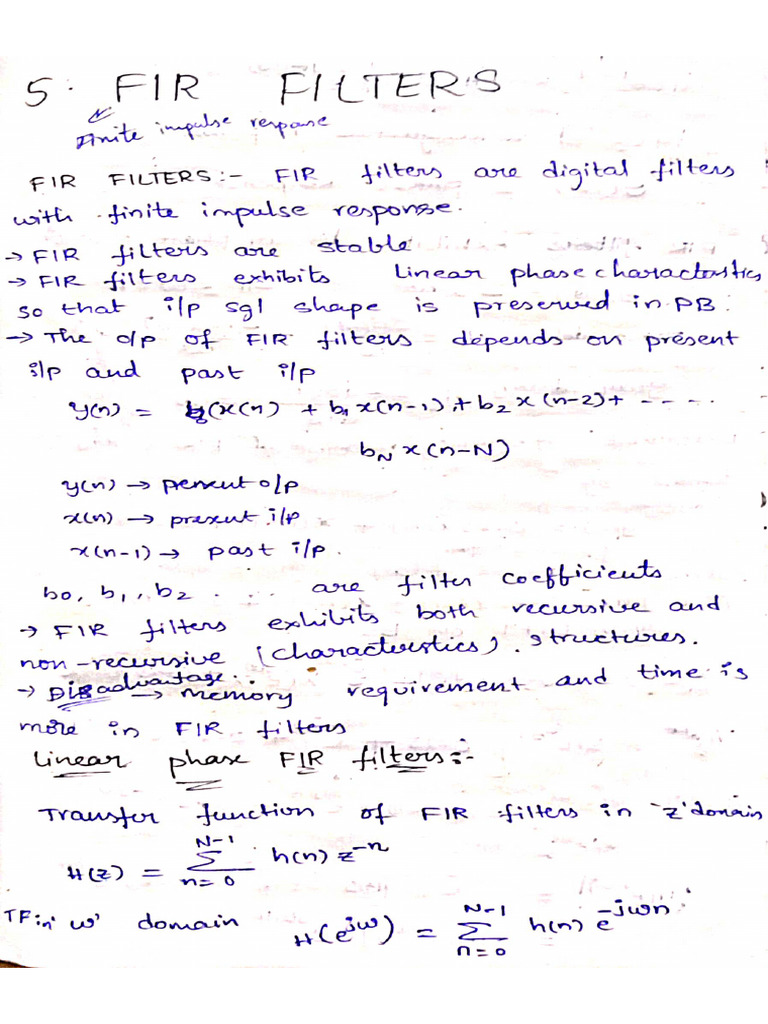 5. FIR FILTERS
Finite impulse response
FIR FILTERS:- FIR filters are digital filters
with finite impulse response.
→ FIR filters are stable
→ FIR filters exhibits linear phase charactoristics
so that i/p sgl shape is preserved in PB.
→ The o/p of FIR filters depends on present
i/p and past i/p
y(n) = b0(x(n) + b1 x(n-1) + b2 x(n-2) + - - - -
bN x(n-N)
y(n) → present o/p
x(n) → present i/p
x(n-1) → past i/p.
b0, b1, b2 . . . . are filter coefficients
→ FIR filters exhibits both recursive and
non-recursive (characteristics). structures.
→ Disadvantage: → memory requirement and time is
more in FIR filters
Linear phase FIR filters:-
Transfer function of FIR filters in 'z' domain
H(z) = Σ_{n=0}^{N-1} h(n) z^{-n}
TF in 'w' domain H(e^{jw}) = Σ_{n=0}^{N-1} h(n) e^{-jwn}